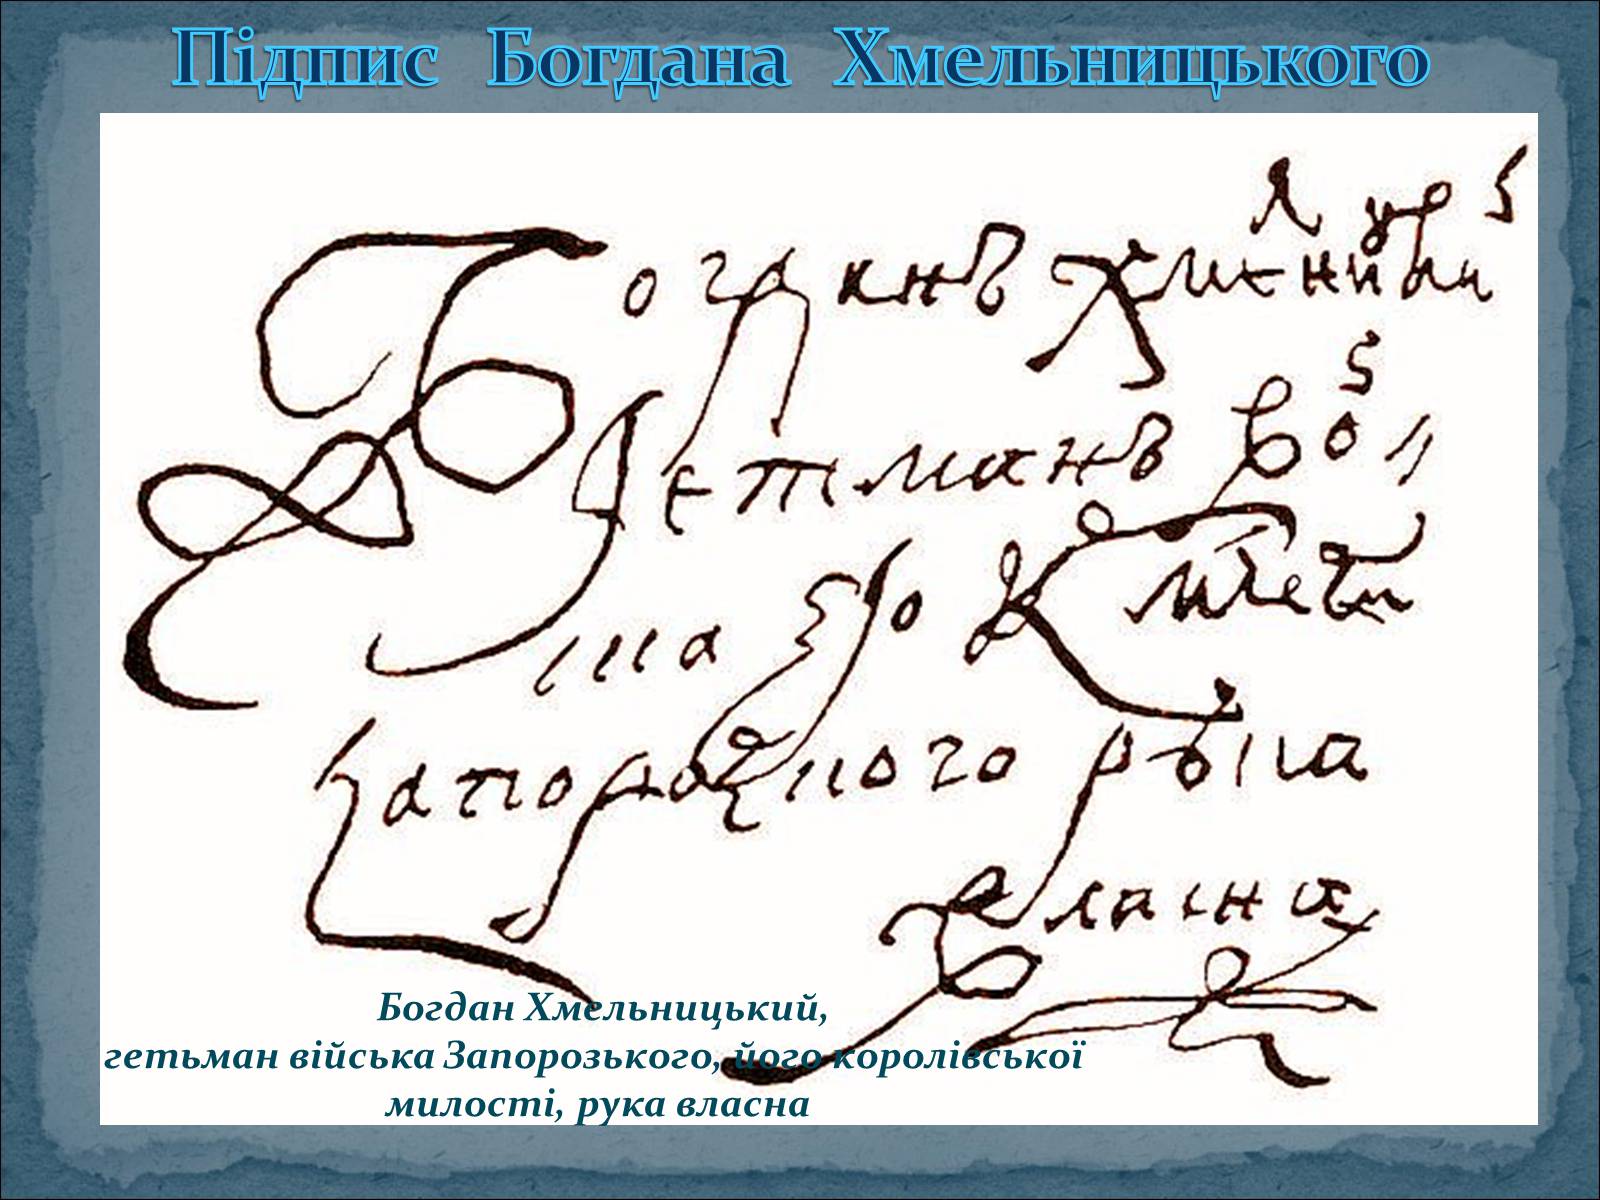 Підпис Богдана Хмельницького
Богданъ Хмелницкий
Гетманъ Войска
его К милети
Запорозкого рука
власна
Богдан Хмельницький,
гетьман війська Запорозького, його королівської
милості, рука власна